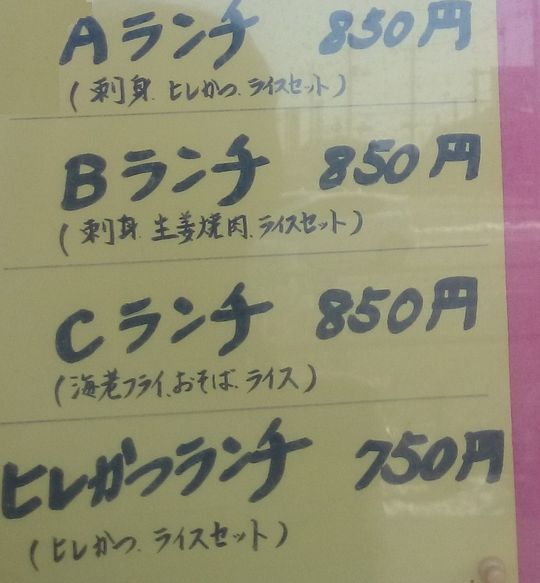 Aランチ 850円
(刺身.ヒレかつ.ライスセット)
Bランチ 850円
(刺身.生姜焼肉.ライスセット)
Cランチ 850円
(海老フライ.おそば.ライス)
ヒレかつランチ 750円
(ヒレかつ.ライスセット)